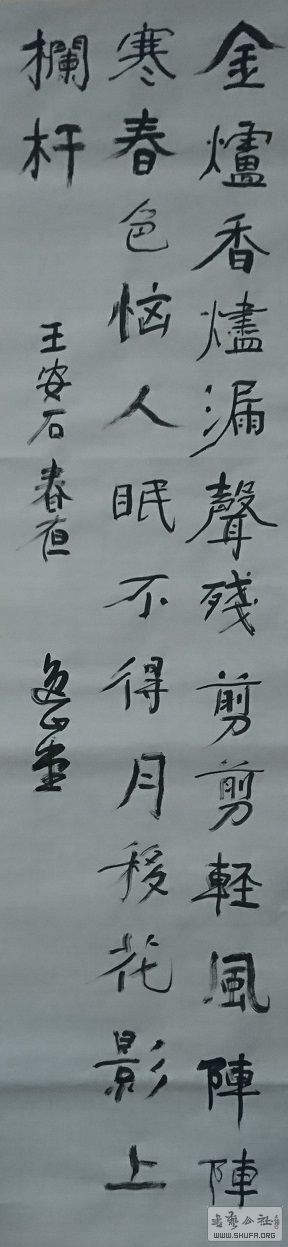 金爐香燼漏聲殘剪剪軽風陣陣
寒春色恼人眠不得月移花影上
欄杆
王安石春夜
書藝公社
WWW.SHUFA.ORG